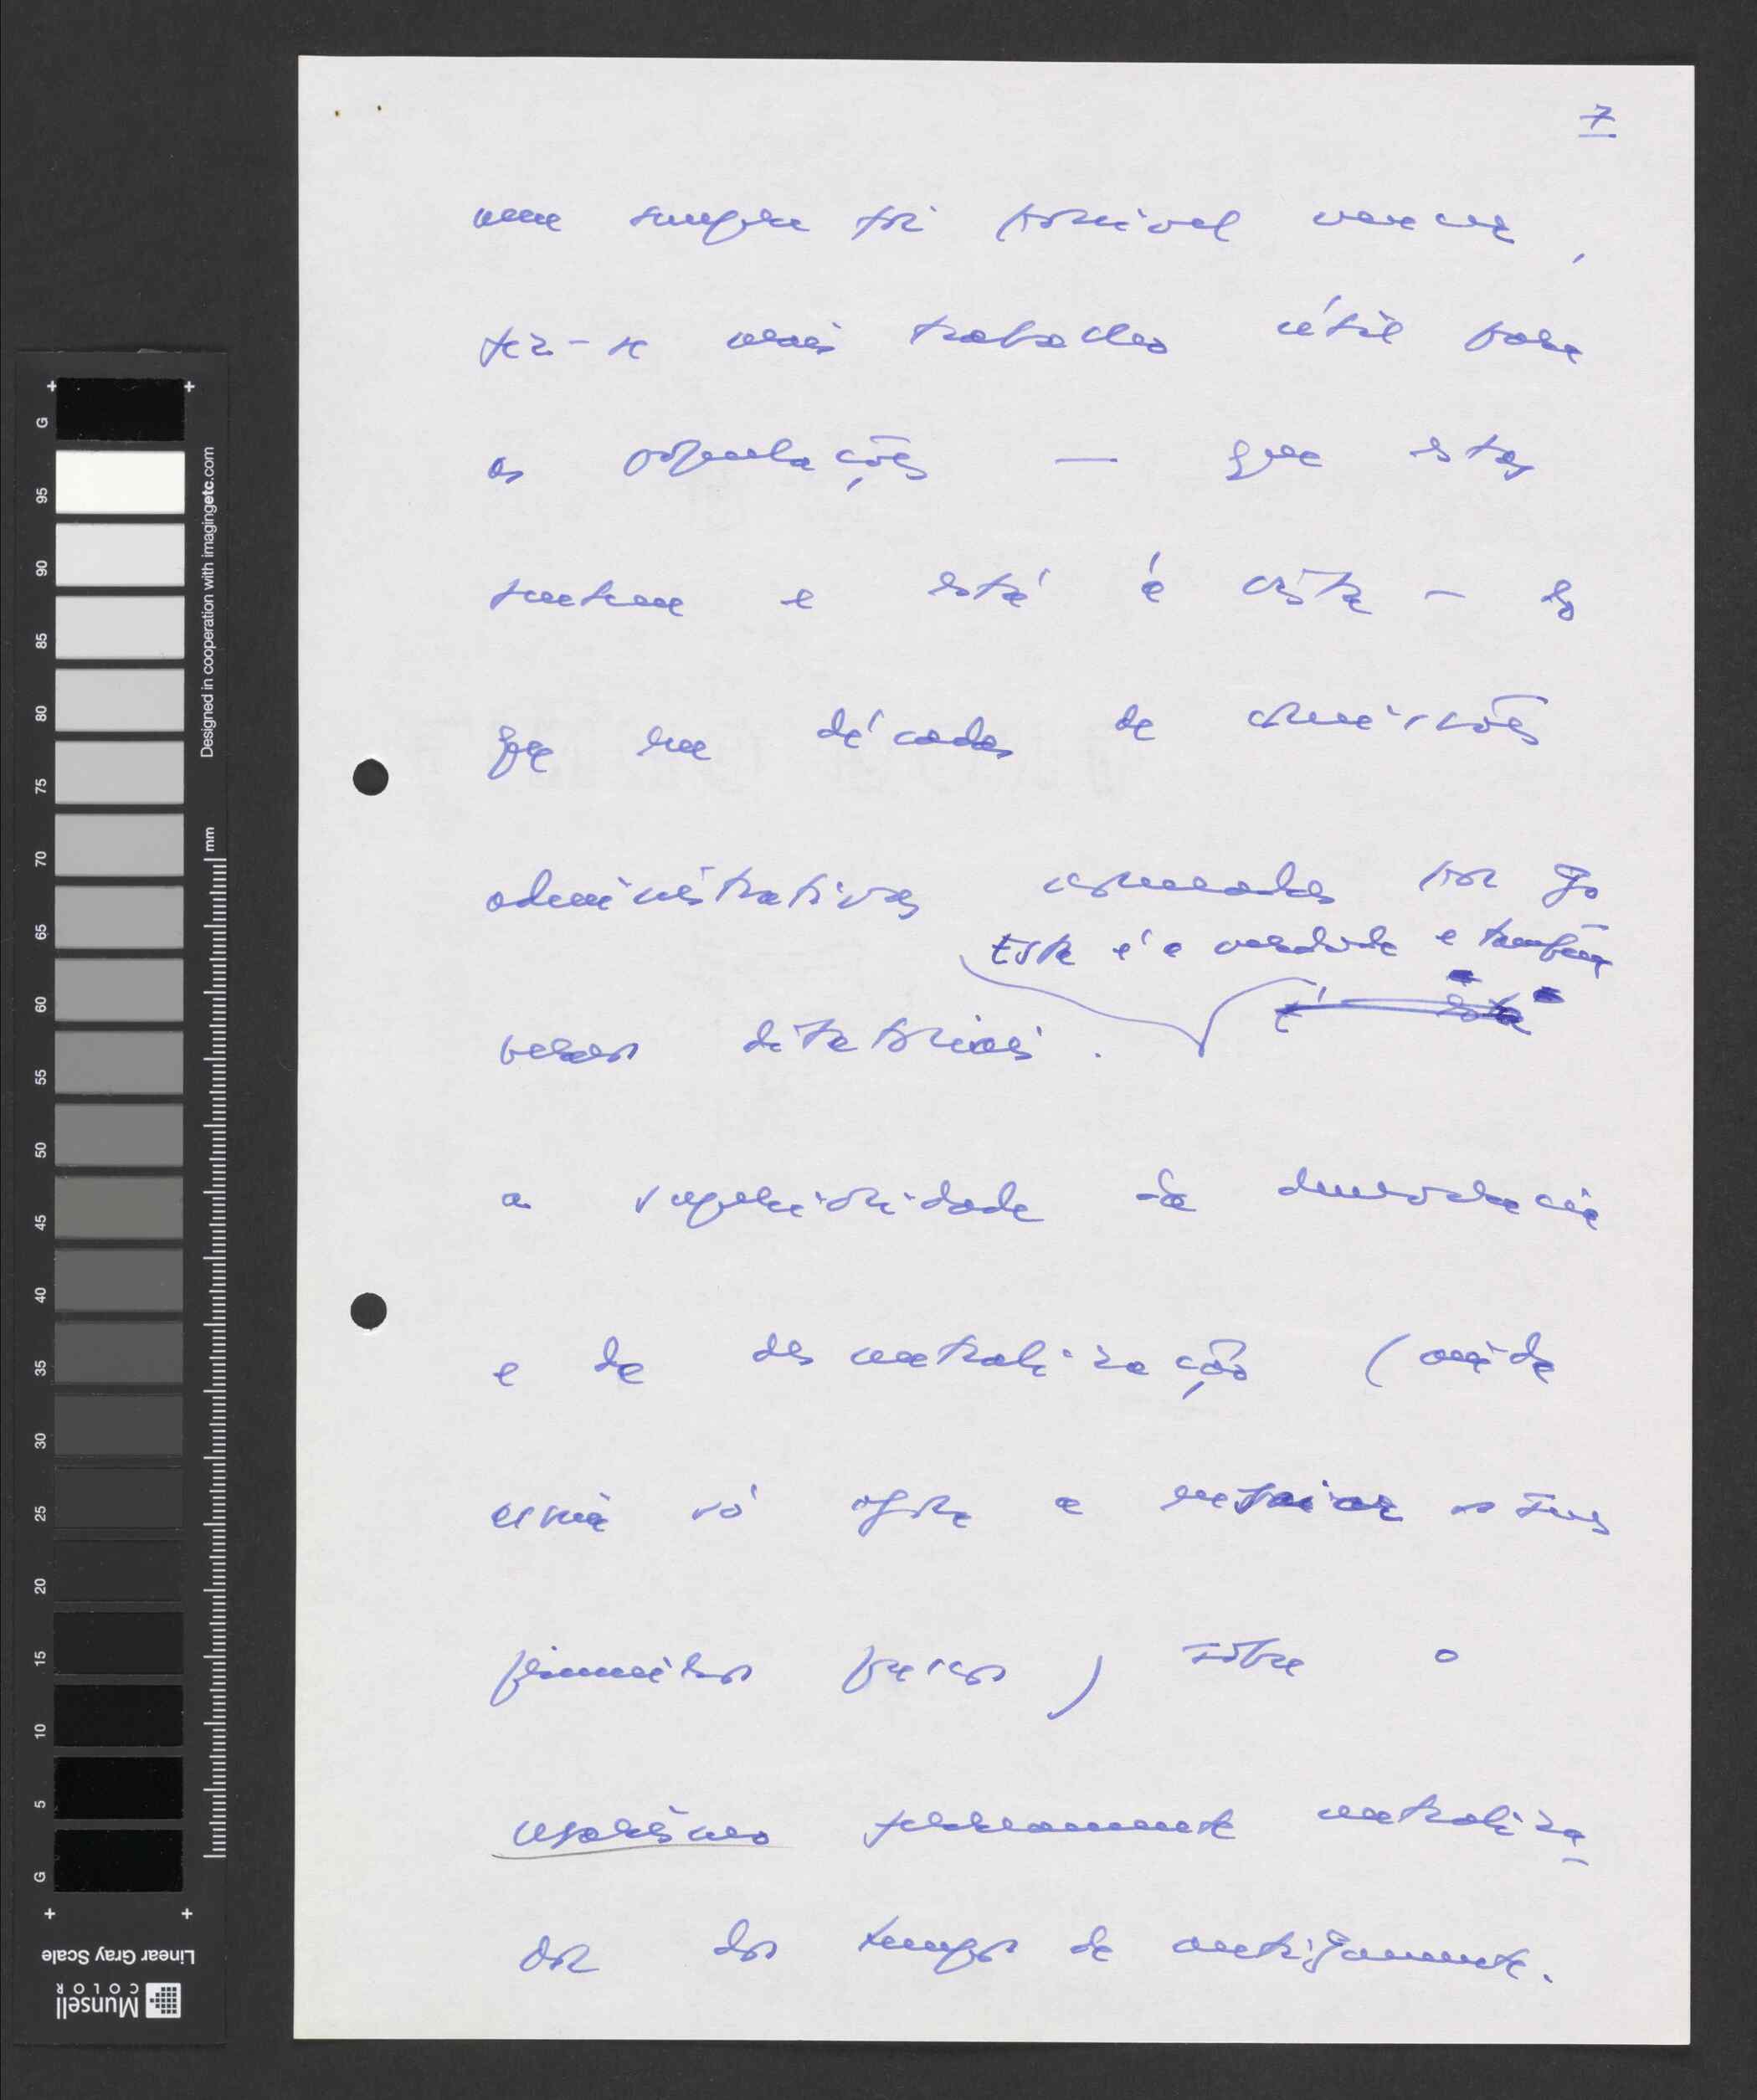 7
nem sempre foi possível vencer,
fez-se mais trabalho útil para
as populações — que estas
sentem e está à vista — do
que em décadas de comissões
administrativas nomeadas por go
Esta é a verdade e também
vernos ditatoriais.
a superioridade da democracia
e da descentralização (ainda
assim só agora a ensaiar os seus
primeiros passos) sobre o
caciquismo ferreamente centraliza
dor dos tempos de antigamente.
G
95
90
85
80
75
70
65
60
55
50
45
40
35
30
25
20
15
10
5
G
Designed in cooperation with imagingetc.com
mm
Linear Gray Scale
Munsell
COLOR